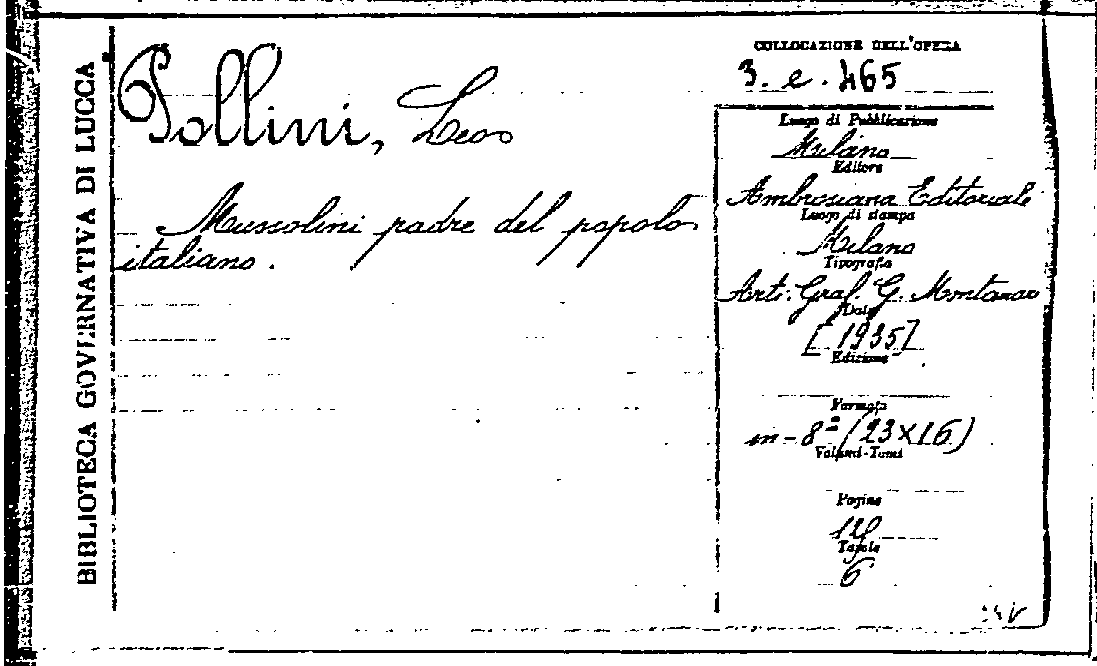 BIBLIOTECA GOVERNATIVA DI LUCCA
Pollini, Leo
Mussolini padre del popolo
italiano.
COLLOCAZIONE DELL'OPERA
3. e. 465
Luogo di Pubblicazione
Milano
Editore
Ambrosiana Editoriale
Luogo di stampa
Milano
Tipografia
Arti. Graf. G. Montanar
Data
[1935]
Edizione
Formato
in-8º (23×16)
Volumi-Tomi
Pagine
Tavole
6